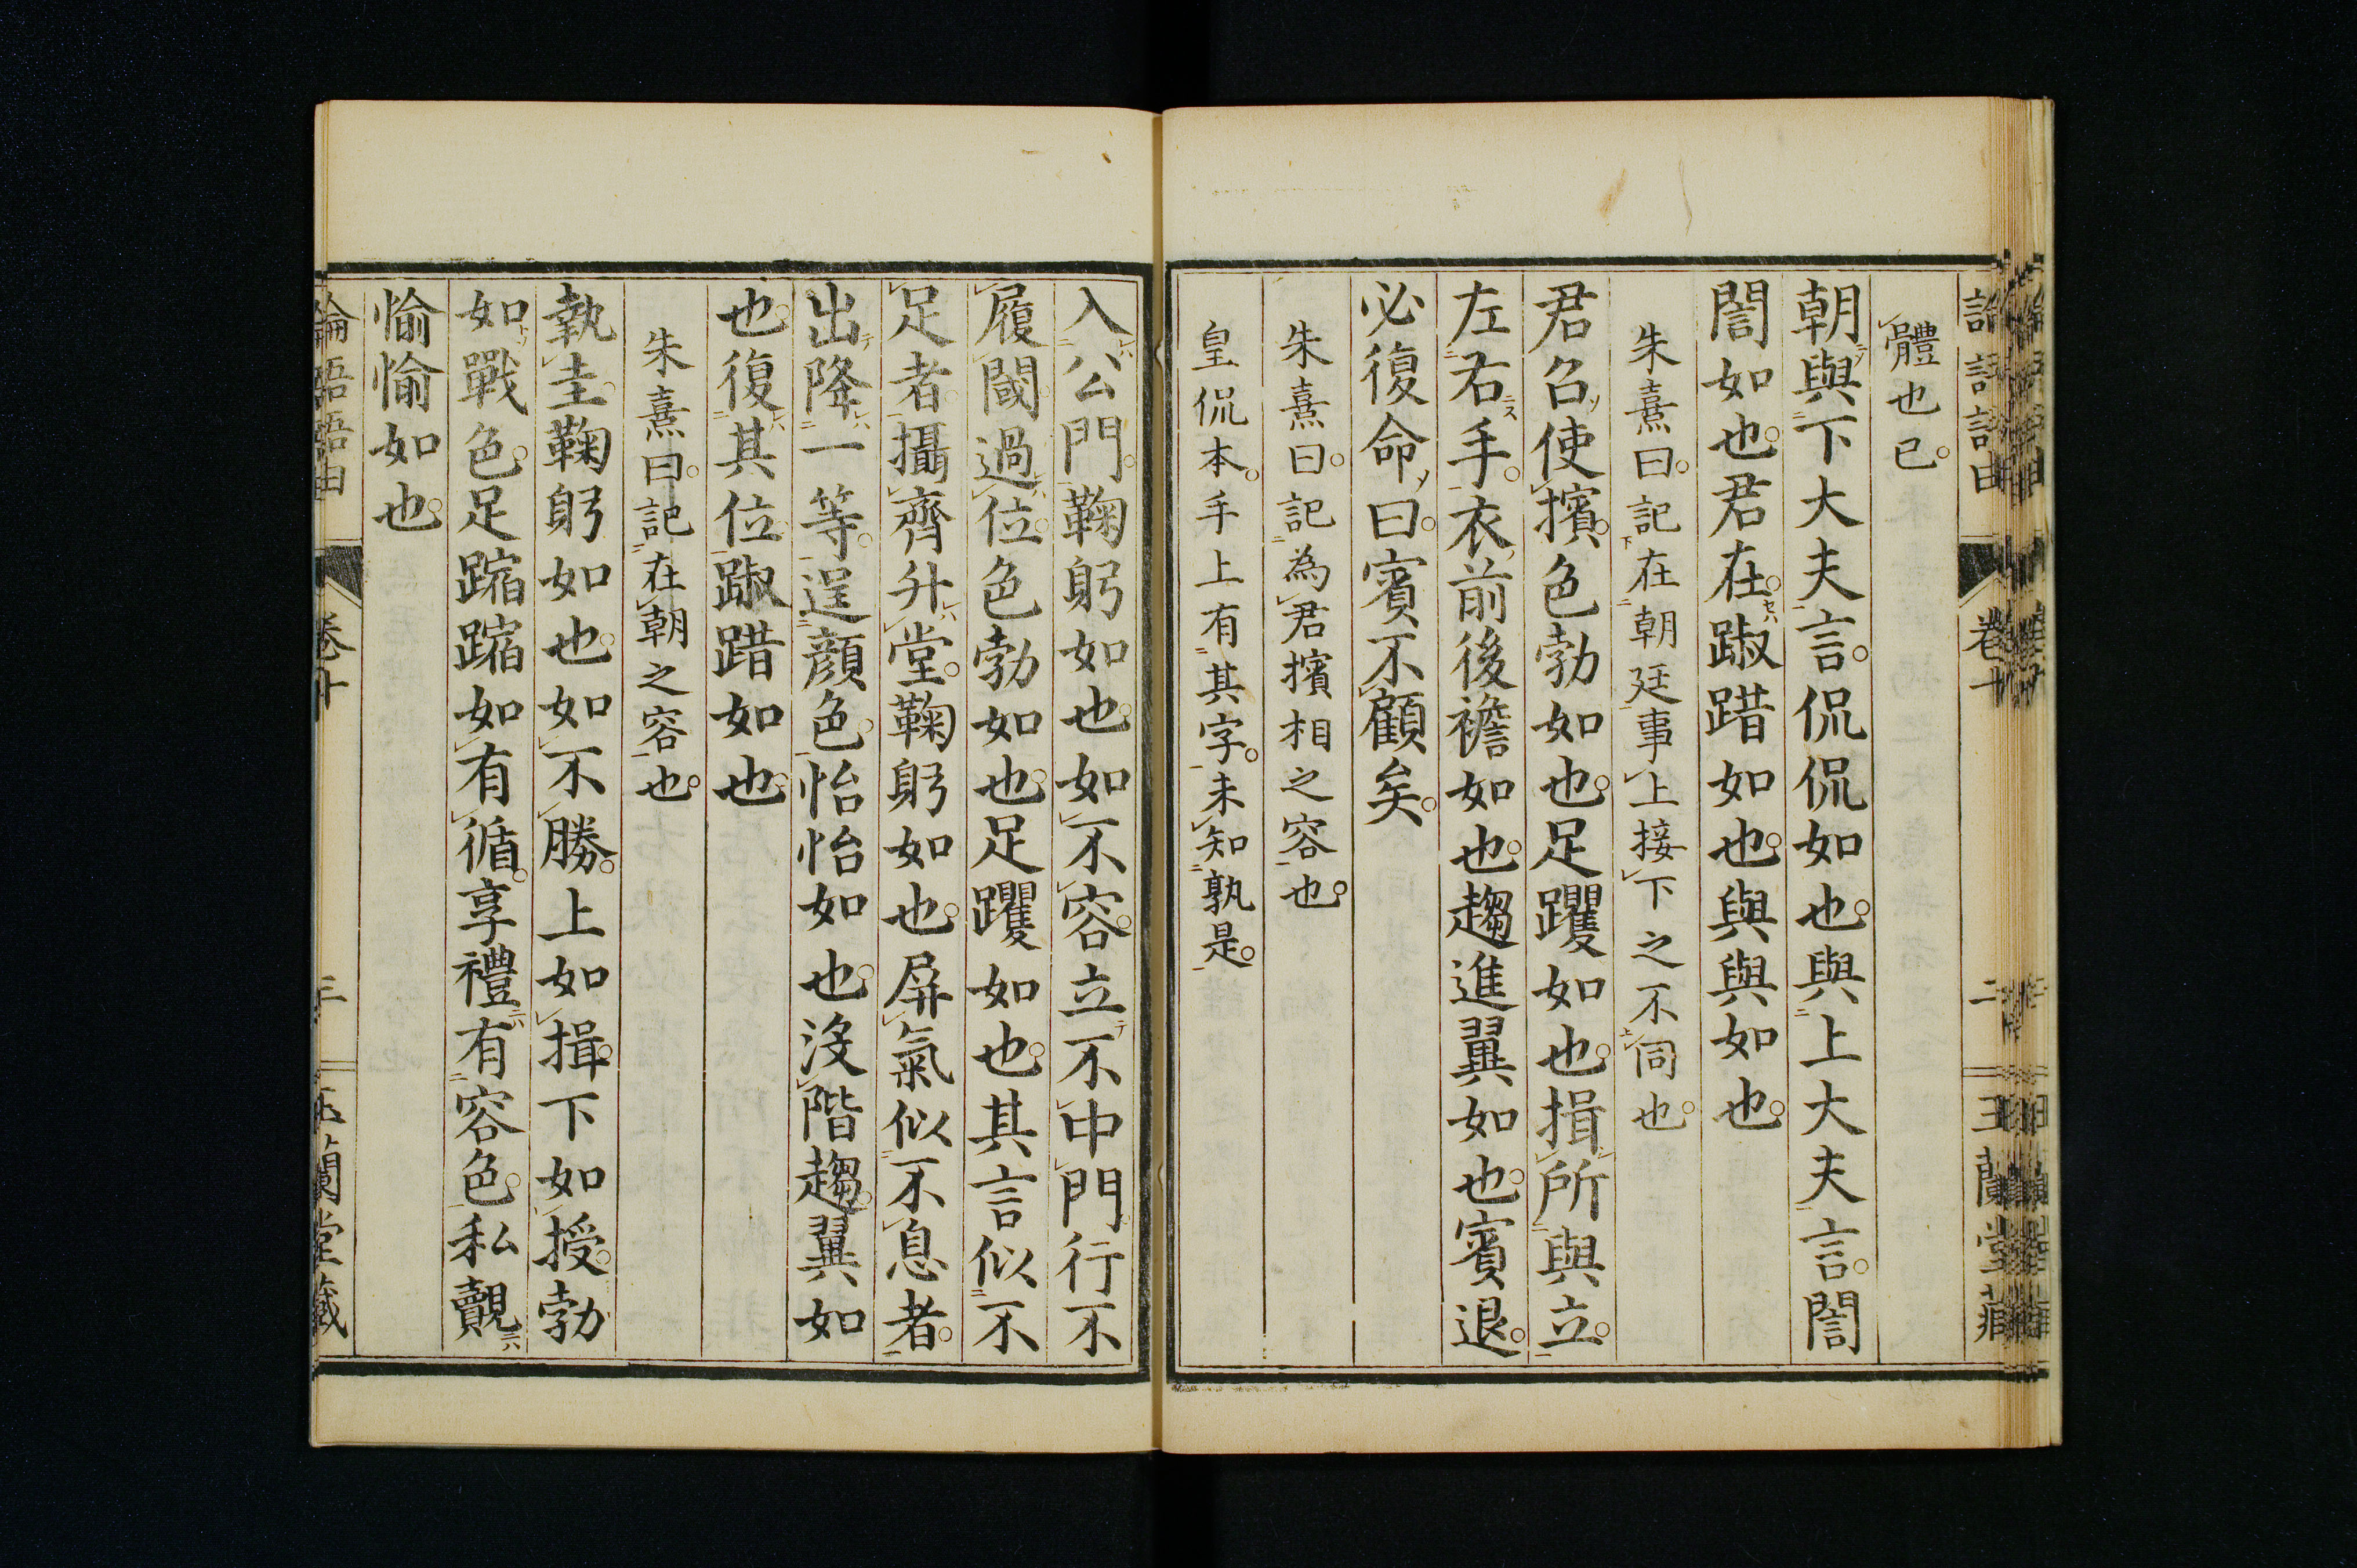 體也已。
朝與下大夫言。侃侃如也。與上大夫言。誾
誾如也。君在。踧踖如也。與與如也。
朱熹曰。記在朝廷事上接下之不同也。
君召使擯。色勃如也。足躩如也。揖所與立。
左右手。衣前後襜如也。趨進翼如也。賓退。
必復命曰。賓不顧矣。
朱熹曰。記為君擯相之容也。
皇侃本。手上有其字。未知孰是。
入公門。鞠躬如也。如不容。立不中門。行不
履閾。過位。色勃如也。足躩如也。其言似不
足者。攝齊升堂。鞠躬如也。屏氣似不息者。
出降一等。逞顏色。怡怡如也。沒階趨。翼如
也。復其位。踧踖如也。
朱熹曰。記在朝之容也。
執圭。鞠躬如也。如不勝。上如揖。下如授。勃
如戰色。足蹜蹜如有循。享禮有容色。私覿
愉愉如也。
論語語由 卷十 三 玉蘭堂藏